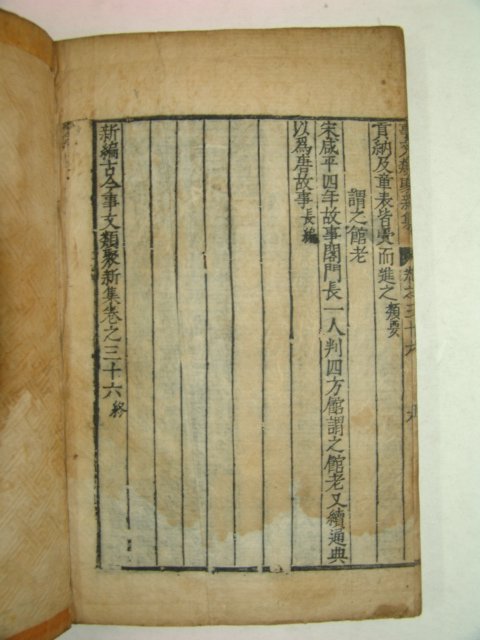 貢納及章表皆受而進之類要
謂之館老
宋咸平四年故事閤門長一人判四方館謂之館老又續通典
以爲故事長編
新編古今事文類聚新集卷之三十六終